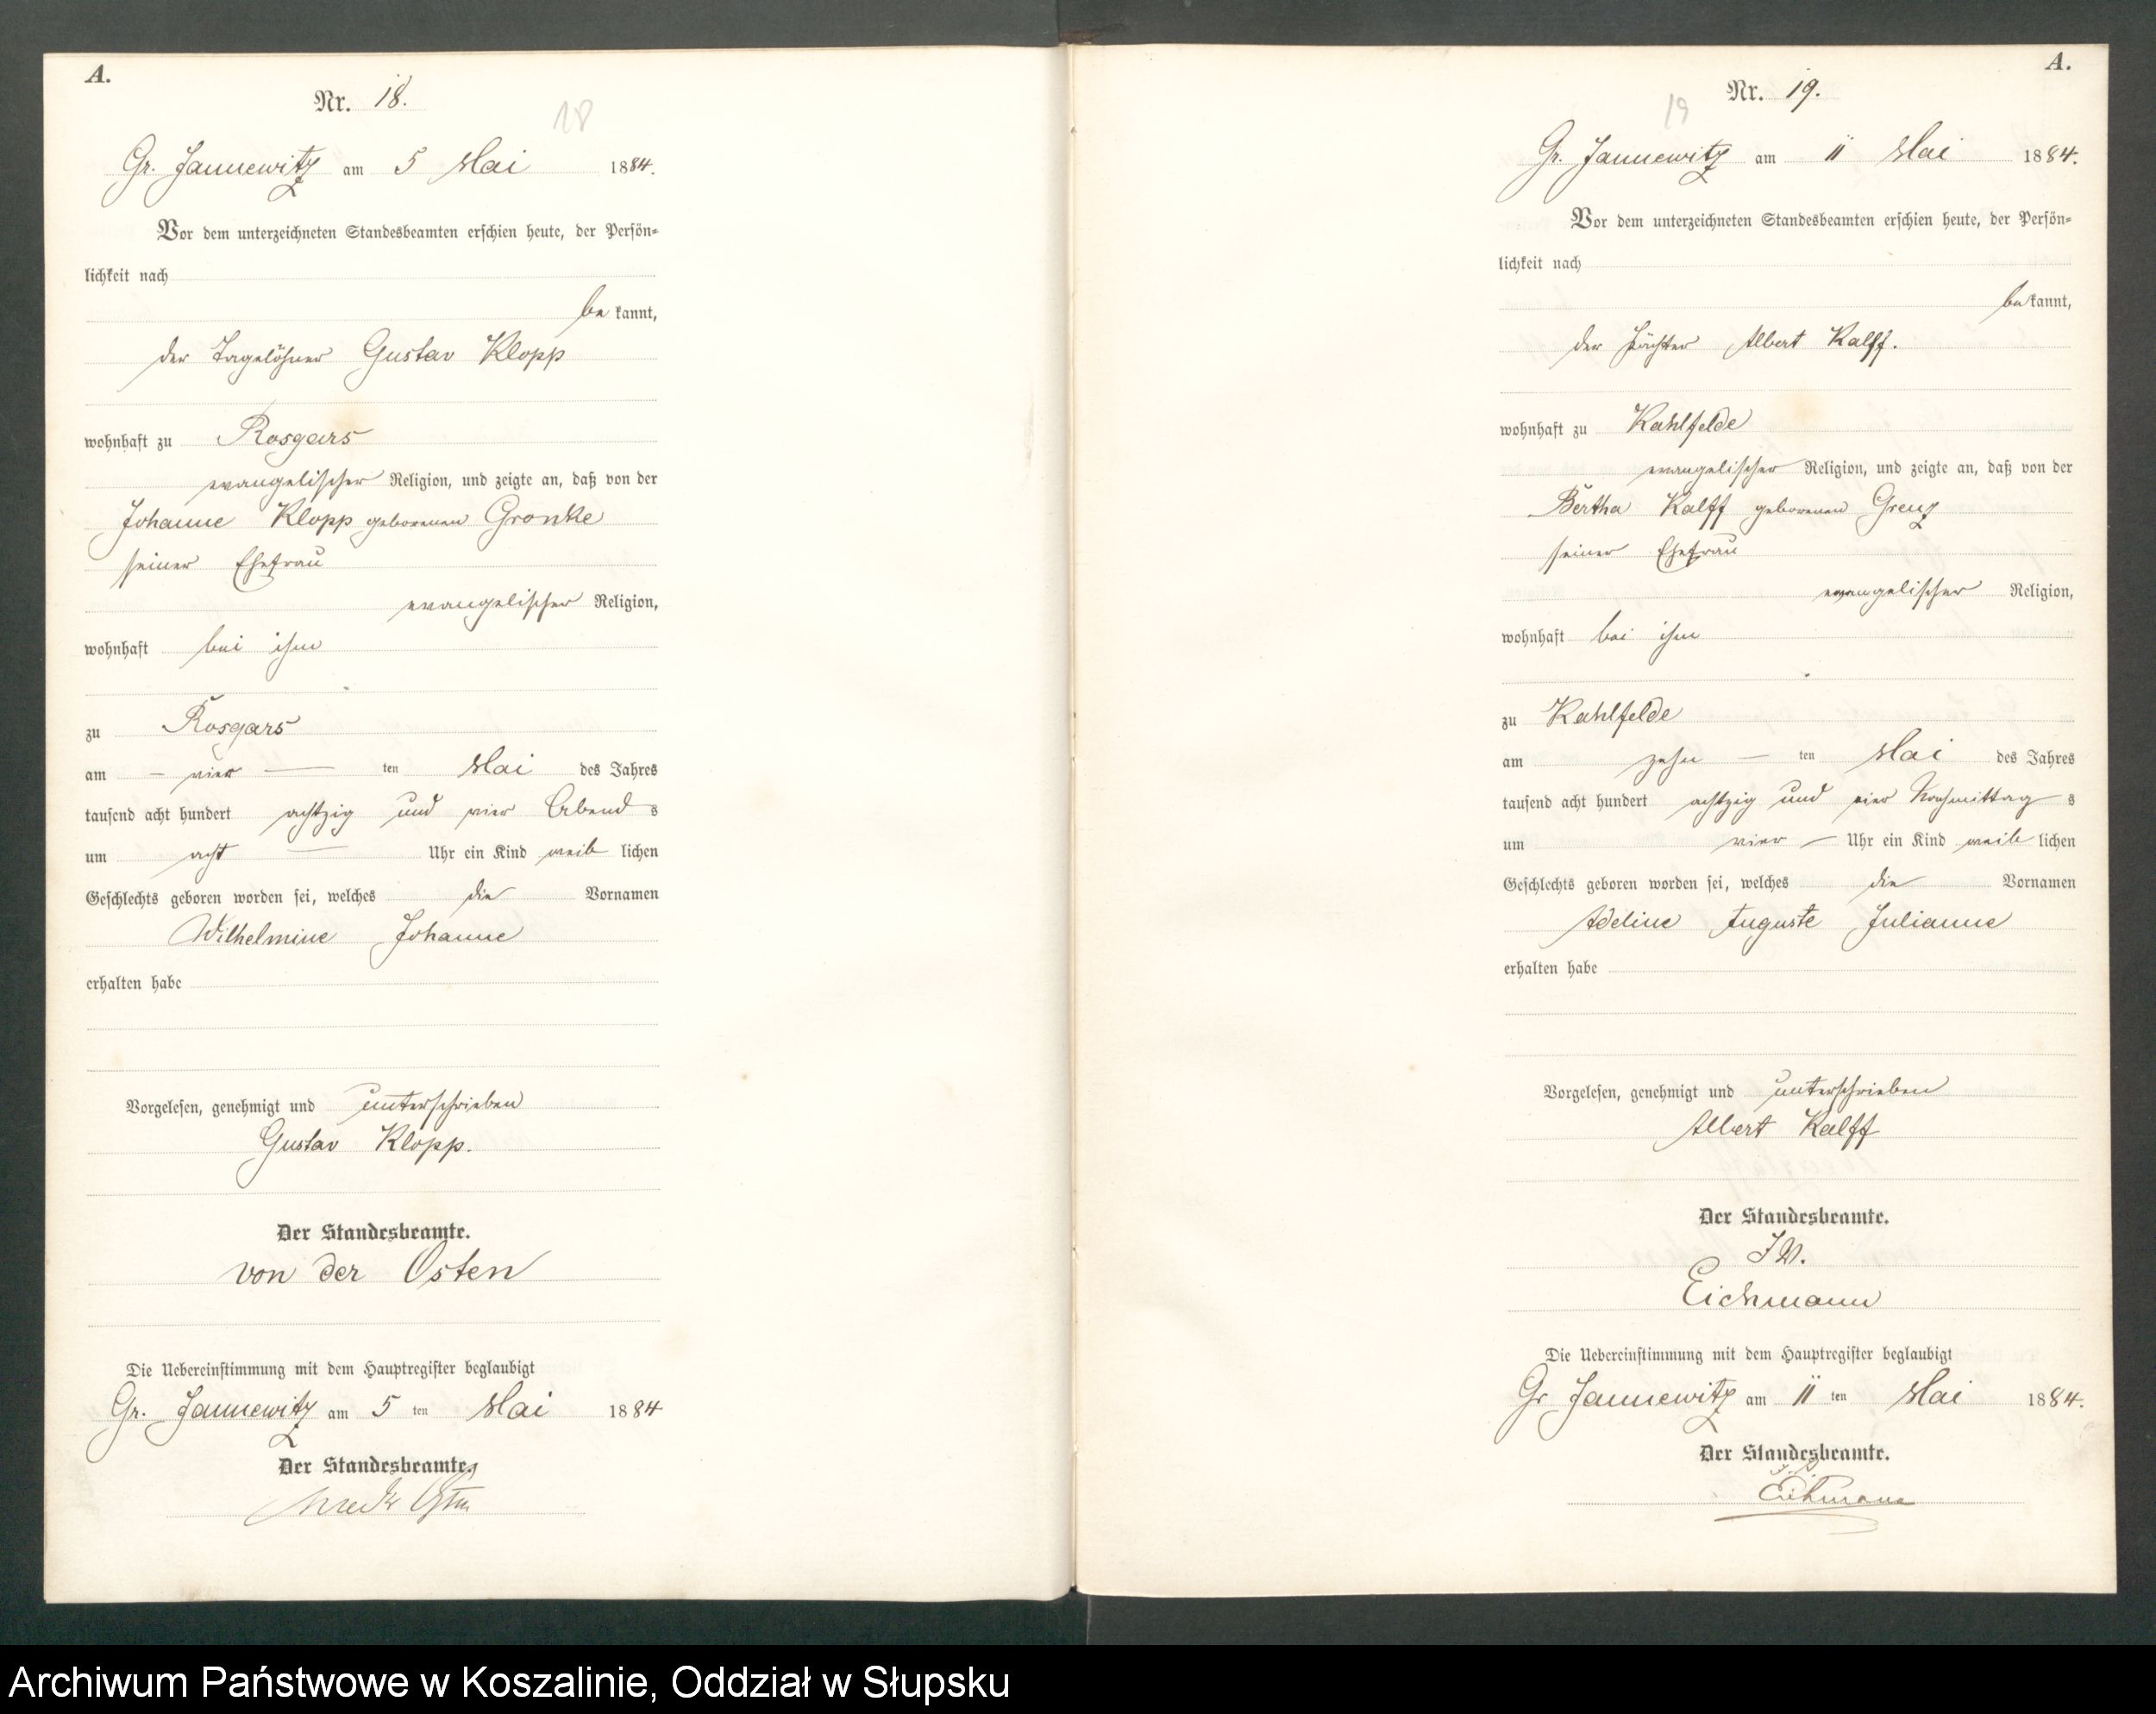 A.
Nr. 18.
18
Gr. Jannewitz am 5 Mai 1884.
Vor dem unterzeichneten Standesbeamten erschien heute, der Persön-
lichkeit nach
be kannt,
der Tagelöhner Gustav Klopp
wohnhaft zu Rosgars
evangelischer Religion, und zeigte an, daß von der
Johanne Klopp geborenen Gronke
seiner Ehefrau
evangelischer Religion,
wohnhaft bei ihm
zu Rosgars
am – vier — ten Mai des Jahres
tausend acht hundert achtzig und vier Abend s
um acht — Uhr ein Kind weib lichen
Geschlechts geboren worden sei, welches die Vornamen
Wilhelmine Johanne
erhalten habe
Vorgelesen, genehmigt und unterschrieben
Gustav Klopp.
Der Standesbeamte.
von der Osten
Die Uebereinstimmung mit dem Hauptregister beglaubigt
Gr. Jannewitz am 5 ten Mai 1884
Der Standesbeamte.
Osten
A.
Nr. 19.
19
Gr. Jannewitz am 11 Mai 1884.
Vor dem unterzeichneten Standesbeamten erschien heute, der Persön-
lichkeit nach
be kannt,
der Pächter Albert Kalff.
wohnhaft zu Kahlfelde
evangelischer Religion, und zeigte an, daß von der
Bertha Kalff geborenen Grenz
seiner Ehefrau
evangelischer Religion,
wohnhaft bei ihm
zu Kahlfelde
am zehn — ten Mai des Jahres
tausend acht hundert achtzig und vier Nachmittag s
um vier — Uhr ein Kind weib lichen
Geschlechts geboren worden sei, welches die Vornamen
Adeline Auguste Julianne
erhalten habe
Vorgelesen, genehmigt und unterschrieben
Albert Kalff
Der Standesbeamte.
I V.
Eichmann
Die Uebereinstimmung mit dem Hauptregister beglaubigt
Gr Jannewitz am 11 ten Mai 1884.
Der Standesbeamte.
I. V.
Eichmann
Archiwum Państwowe w Koszalinie, Oddział w Słupsku